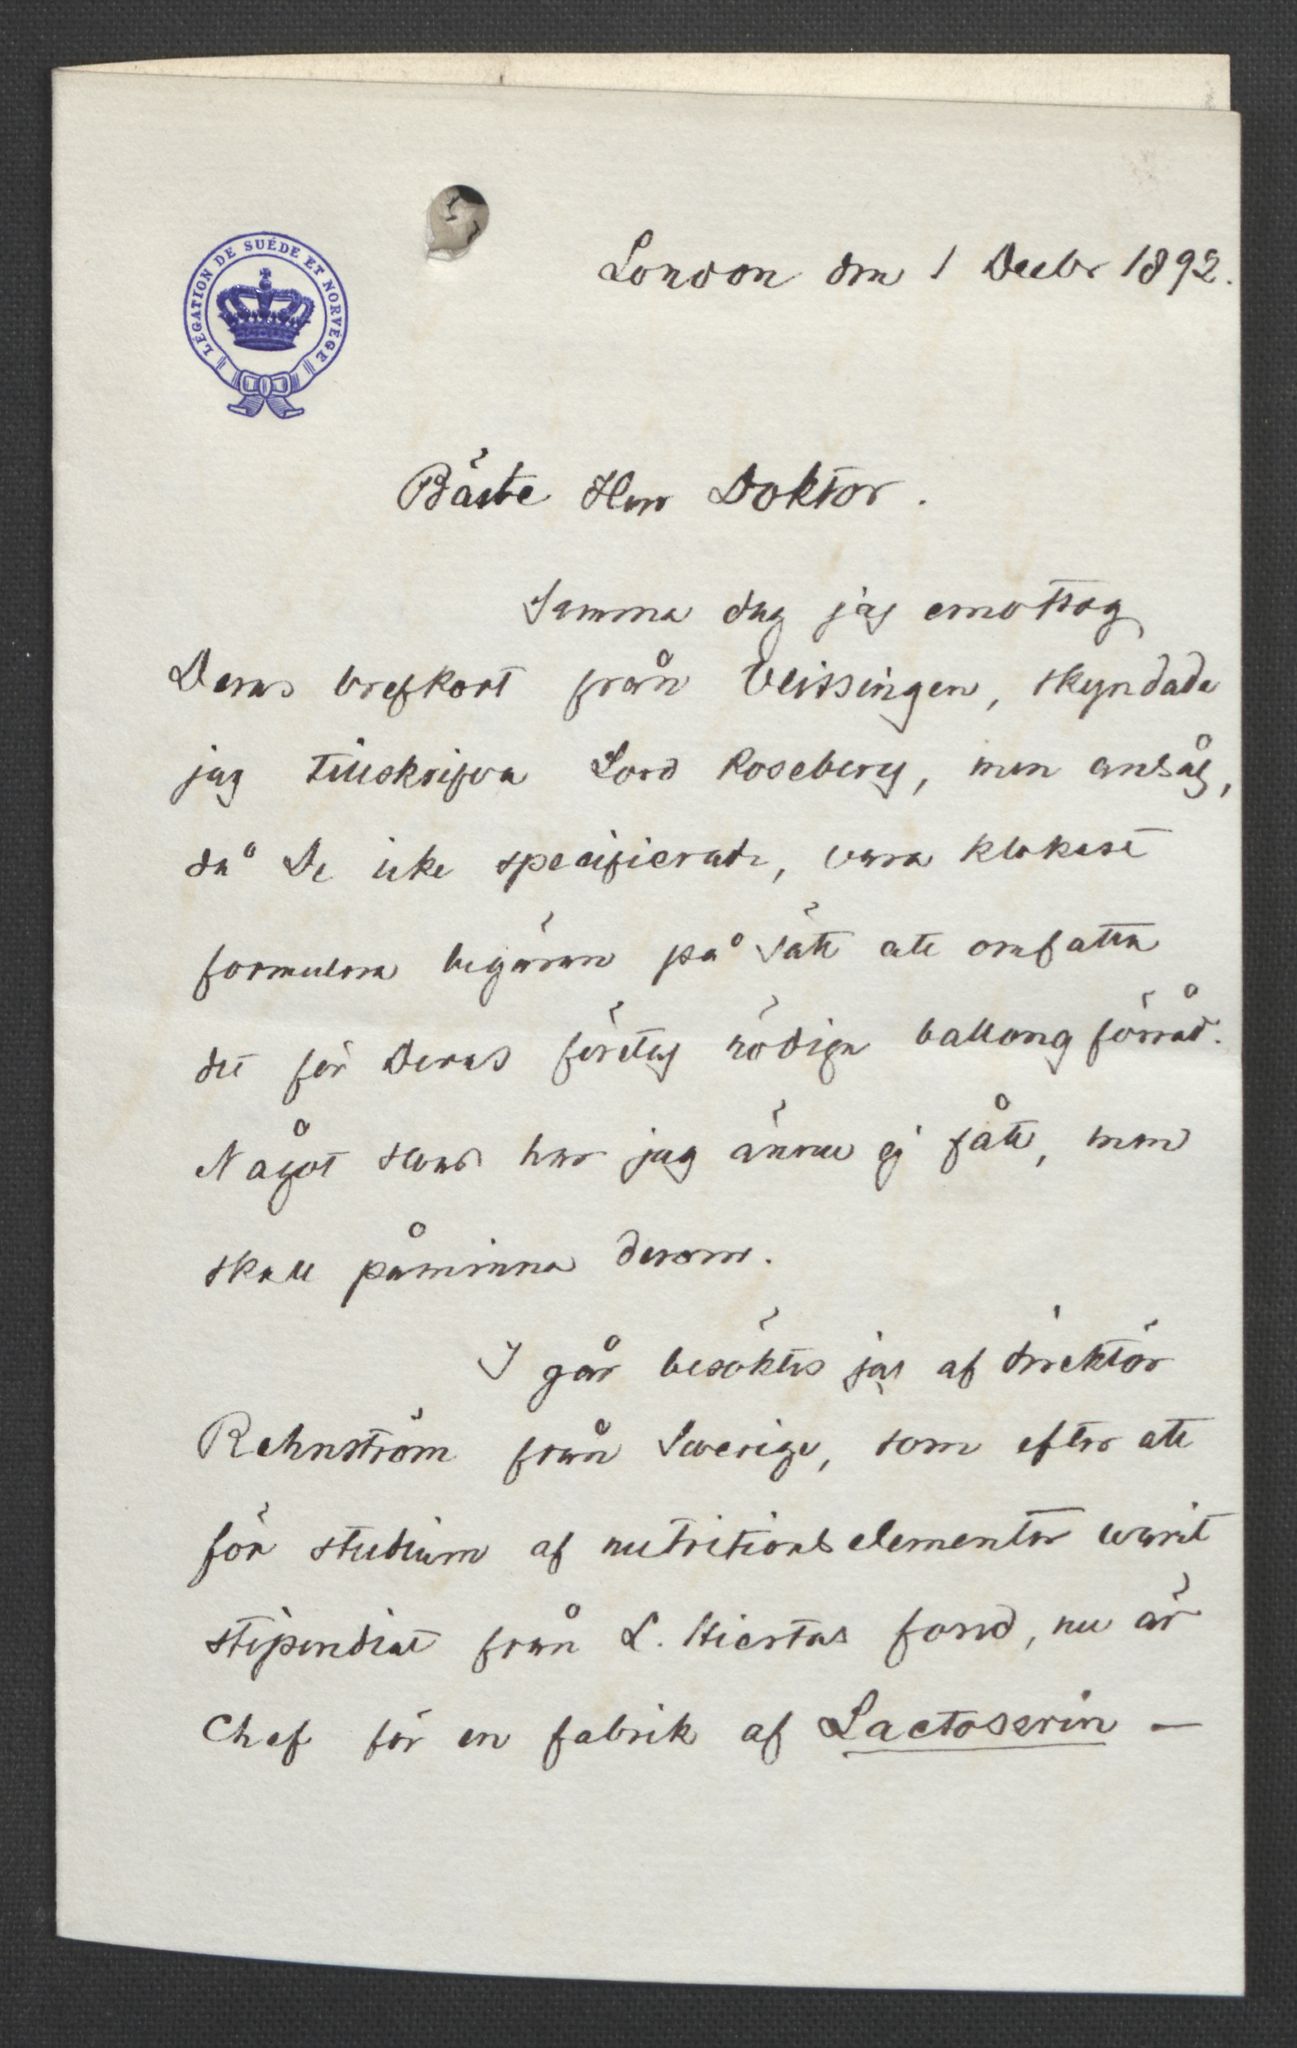 LÉGATION DE SUÉDE ET NORVÈGE
London den 1 Decbr 1892.
Bäste Herr Doktor.
Samma dag jag emottog
Deras brefkort från Vlissingen, skyndade
jag tillskrifva Lord Rosebery, men ansåg,
då De icke specifierade, vara klokast
formulera begäran på sätt att omfatta
det för Deras företag nödiga ballong förråd.
Något svar har jag ännu ej fått, men
skall påminna derom.
I går besöktes jag af direktör
Rehnström från Sverige, som efter att
för studium af nutritions elementer warit
stipendiat från L. Hiertas fond, nu är
Chef för en fabrik af Lactoserin —